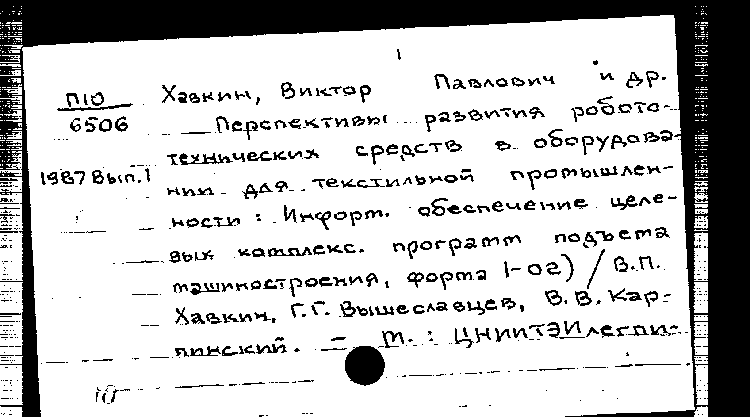 1
П10 Хавкин, Виктор Павлович и др.
6506 Перспективы развития робото-
технических средств в оборудова-
1987 Вып.1 нии для текстильной промышлен-
ности : Информ. обеспечение целе-
вых комплекс. программ подъема
машиностроения, форма 1-ог) / В.П.
Хавкин, Г.Г. Вышеславцев, В.В. Кар-
пинский. - М. : ЦНИИТЭИлегпи-
10